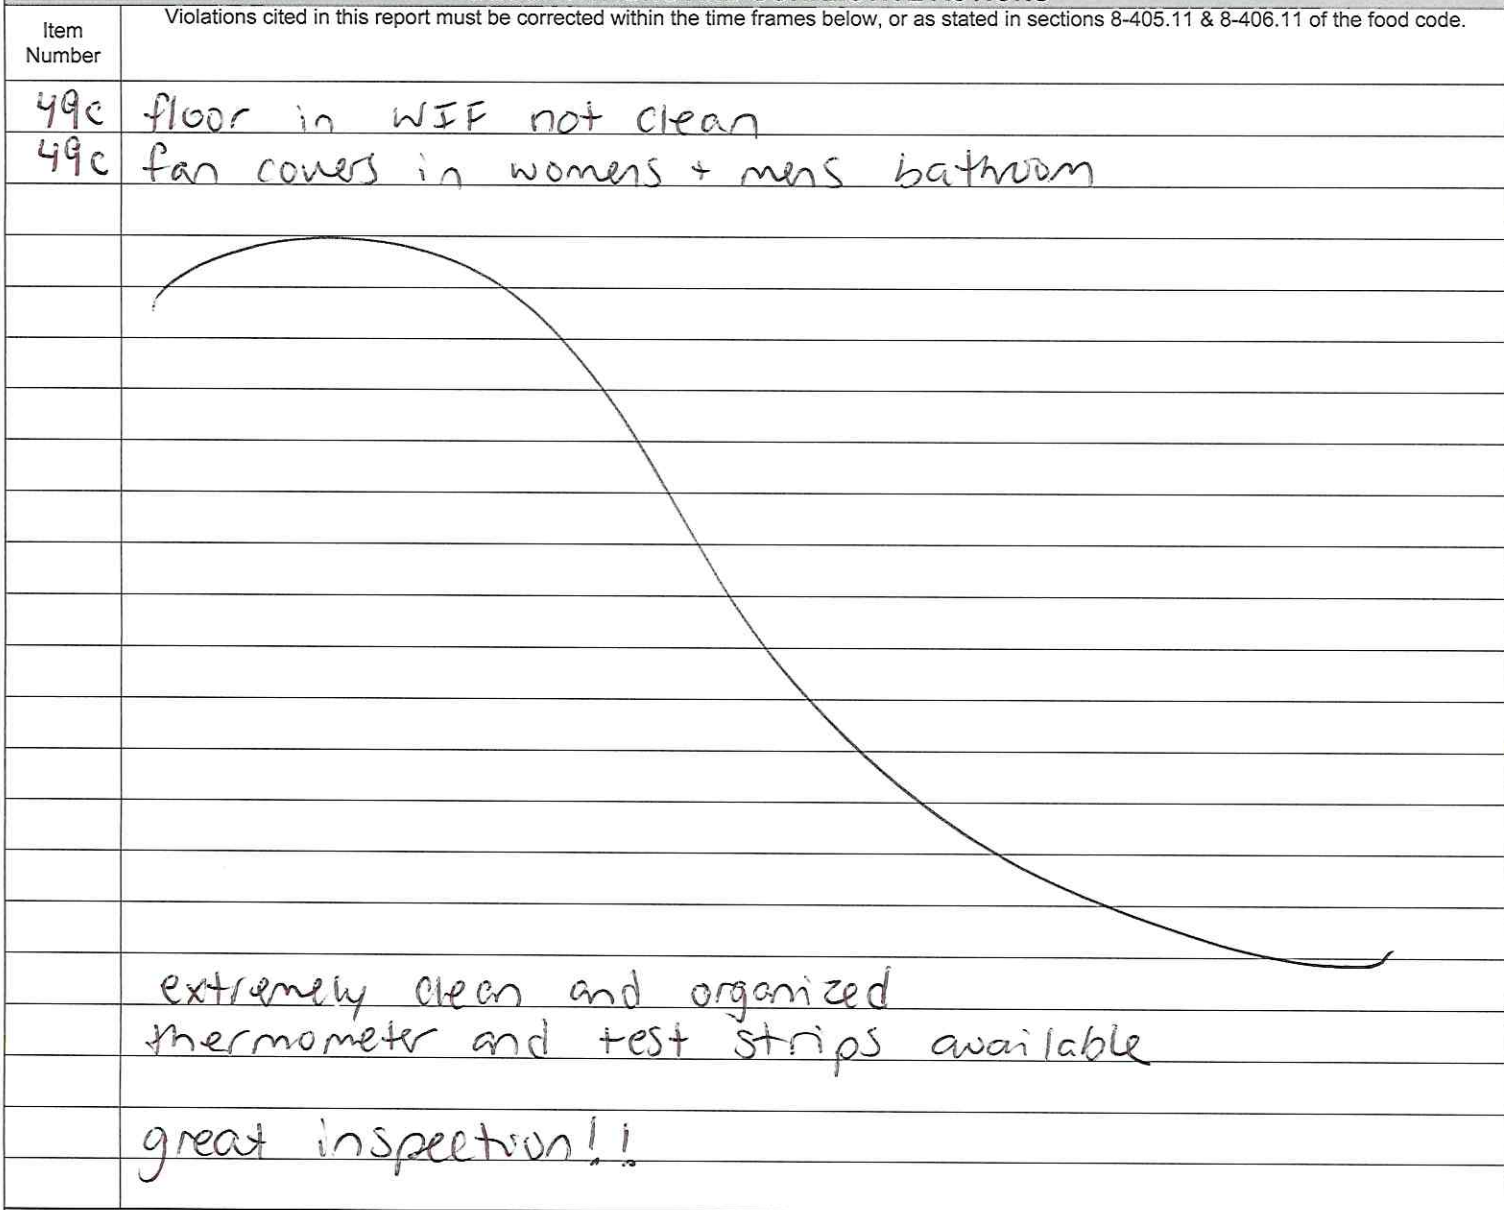 Violations cited in this report must be corrected within the time frames below, or as stated in sections 8-405.11 & 8-406.11 of the food code.
Item
Number
49c floor in WIF not clean
49c fan covers in womens + mens bathroom
extremely clean and organized
thermometer and test strips available
great inspection!!